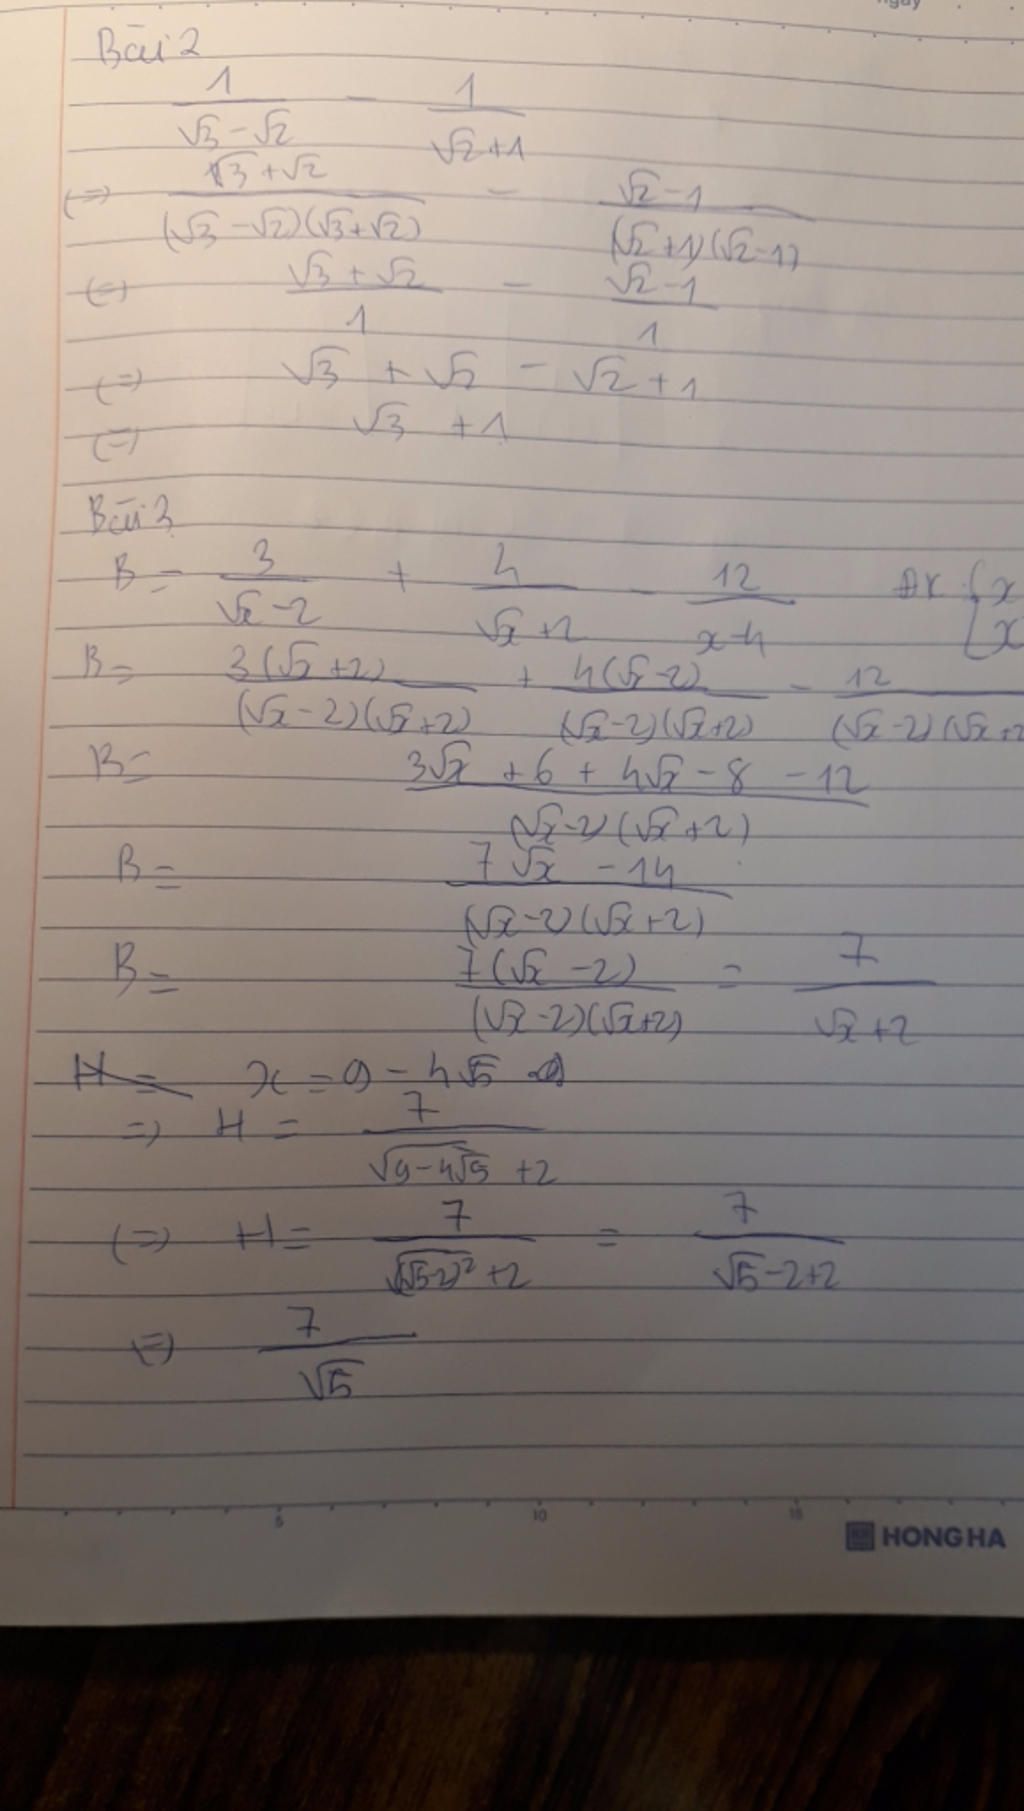 Bài 2
1/(√3 - √2) - 1/(√2 + 1)
(=) (√3 + √2)/((√3 - √2)(√3 + √2)) - (√2 - 1)/((√2 + 1)(√2 - 1))
(=) (√3 + √2)/1 - (√2 - 1)/1
(=) √3 + √2 - √2 + 1
(=) √3 + 1
Bài 3
B = 3/(√x - 2) + 4/(√x + 2) - 12/(x - 4) ĐK { x x
B = 3(√x + 2)/((√x - 2)(√x + 2)) + 4(√x - 2)/((√x - 2)(√x + 2)) - 12/((√x - 2)(√x + 2
B = (3√x + 6 + 4√x - 8 - 12)/((√x - 2)(√x + 2))
B = (7√x - 14)/((√x - 2)(√x + 2))
B = 7(√x - 2)/((√x - 2)(√x + 2)) = 7/(√x + 2)
x = 9 - 4√5
=> H = 7/(√(9 - 4√5) + 2)
(=) H = 7/(√(√5 - 2)² + 2) = 7/(√5 - 2 + 2)
(=) 7/√5
5 10 15
HONG HA